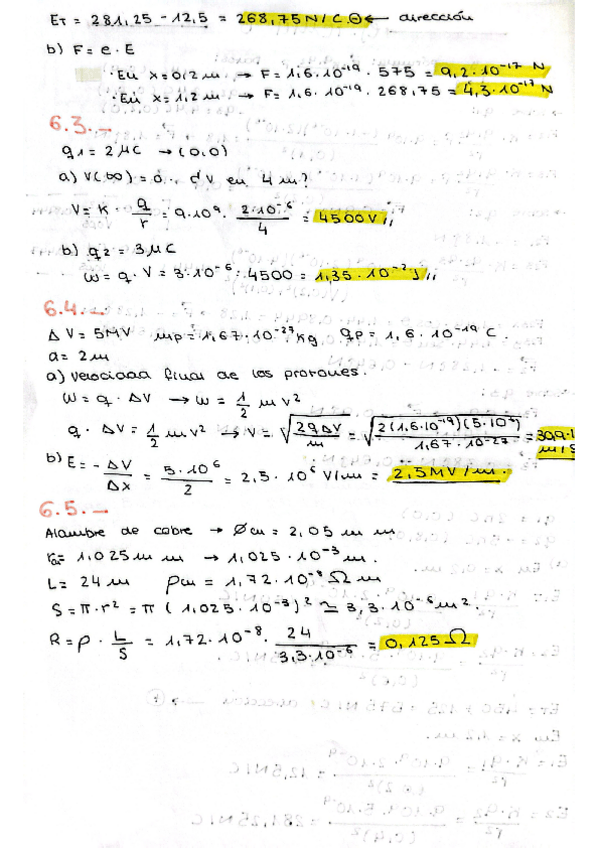 ET = 281,25 - 12,5 = 268,75 N/C. ⊖ ← dirección
b) F = e · E
· En x = 0,2 m → F = 1,6·10⁻¹⁹ · 575 = 9,2·10⁻¹⁷ N
· En x = 1,2 m → F = 1,6·10⁻¹⁹ · 268,75 = 4,3·10⁻¹⁷ N
6.3.-
q1 = 2 μC → (0,0)
a) V(∞) = 0. ¿ V en 4 m?
V = K · q/r = 9·10⁹ · 2·10⁻⁶/4 = 4500 V //
b) q2 = 3 μC
W = q · V = 3·10⁻⁶ · 4500 = 1,35·10⁻² J //
6.4.-
Δ V = 5MV mp = 1,67·10⁻²⁷ Kg qp = 1,6·10⁻¹⁹ C
d = 2 m
a) Velocidad final de los protones.
W = q · ΔV → W = 1/2 m v²
q · ΔV = 1/2 m v² → V = √(2qΔV/m) = √(2(1,6·10⁻¹⁹)(5·10⁶)/1,67·10⁻²⁷) = 309·1
m/s
b) E = - ΔV/Δx = 5·10⁶/2 = 2,5·10⁶ V/m = 2,5 MV/m.
6.5.-
Alambre de cobre → Øcu = 2,05 mm
rcu = 1,025 mm → 1,025·10⁻³ m.
L = 24 m ρcu = 1,72·10⁻⁸ Ω m
S = π·r² = π (1,025·10⁻³)² ≃ 3,3·10⁻⁶ m².
R = ρ · L/S = 1,72·10⁻⁸ · 24/3,3·10⁻⁶ = 0,125 Ω